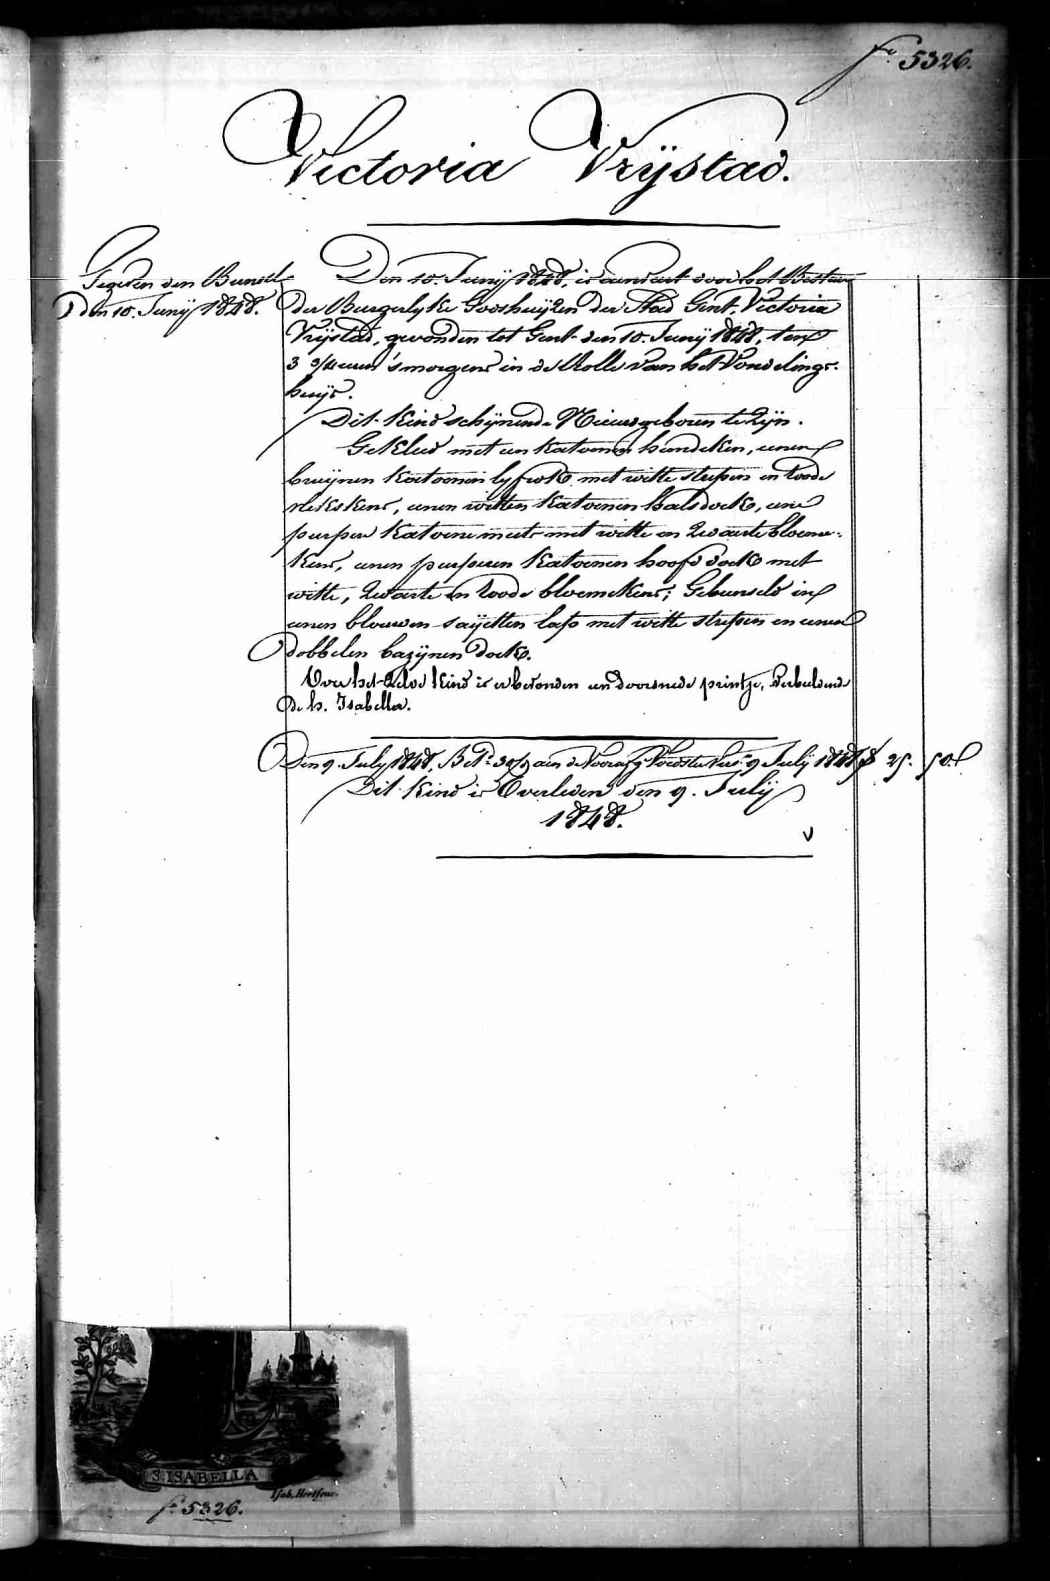 f.° 5326.
Victoria Vrijstad.
Gegeven den Bundel
den 10. Junij 1848.
Den 10. Junij 1848, is aenveert door het Bestuer
der Burgerlyke Godshuijzen der Stad Gent, Victoria
Vrijstad, gevonden tot Gent den 10. Junij 1848, ten
3 3/4 uren 's morgens in de Rolle van het Vondelings-
huijs.
Dit kind schijnende Nieuwgeboren te Zijn.
Gekleed met een katoenen hemdeken, eenen
bruijnen katoenen lyfrok met witte strepen en roode
vlekskens, eenen witten katoenen halsdoek, eene
purpere katoene muts met witte en zwarte bloeme-
kens, eenen purperen katoenen hoofddoek met
witte, zwarte en roode bloemekens; Gebunseld in
eenen blauwen saijetten lap met witte strepen en eenen
dobbelen bazijnen doek.
Over het zelve kind is er bevonden een doorsnede printje, verbeeldende
de h. Isabella.
Den 9. July 1848. Bet. 30/9 aen de 9 July 1848 25. 50.
Dit kind is Overleden den 9. Julij
1848.
S. ISABELLA
f.° 5326.